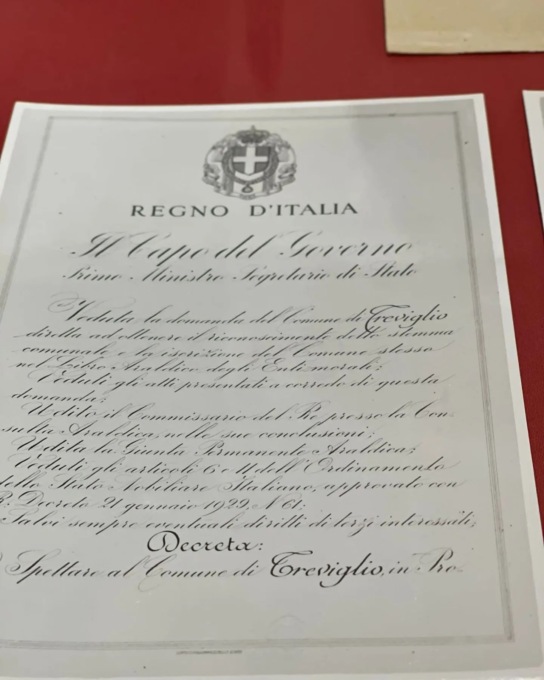 REGNO D'ITALIA
Il Capo del Governo
Primo Ministro Segretario di Stato
Veduta la domanda del Comune di Treviglio
diretta ad ottenere il riconoscimento dello stemma
comunale e la iscrizione del Comune stesso
nel Libro Araldico degli Enti morali;
Veduti gli atti presentati a corredo di questa
domanda;
Udito il Commissario del Re presso la Con-
sulta Araldica, nelle sue conclusioni;
Udita la Giunta Permanente Araldica;
Veduti gli articoli 6 e 11 dell'Ordinamento
dello Stato Nobiliare Italiano, approvato con
R. Decreto 21 gennaio 1929, N 61;
Salvi sempre eventuali diritti di terzi interessati;
Decreta:
Spettare al Comune di Treviglio, in Pro-